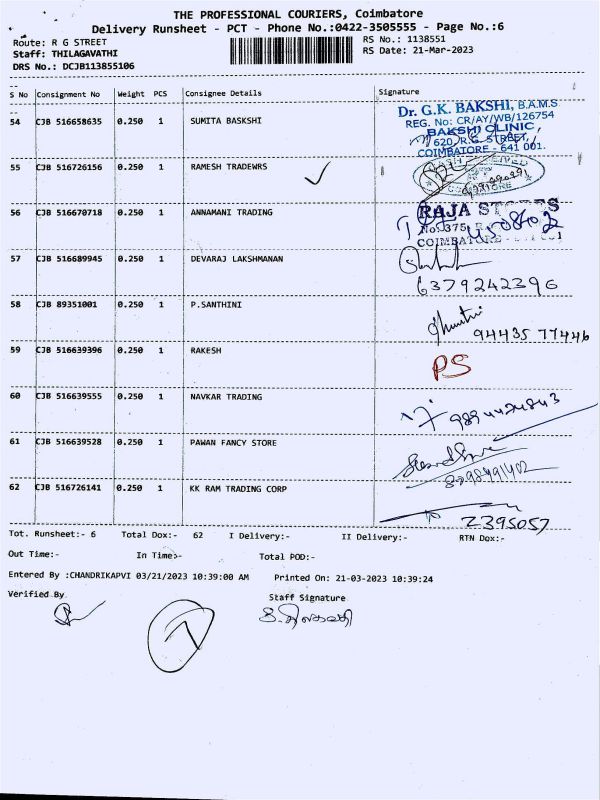 THE PROFESSIONAL COURIERS, Coimbatore
Delivery Runsheet - PCT - Phone No.:0422-3505555 - Page No.:6
Route: R G STREET RS No.: 1138551
Staff: THILAGAVATHI RS Date: 21-Mar-2023
DRS No.: DCJB113855106
S No Consignment No Weight PCS Consignee Details Signature
54 CJB 516658635 0.250 1 SUMITA BASKSHI
Dr. G.K. BAKSHI, B.A.M.S
REG. No: CR/AY/WB/126754
BAKSHI CLINIC,
620, R.G. STREET,
COIMBATORE - 641 001.
55 CJB 516726156 0.250 1 RAMESH TRADEWRS
56 CJB 516670718 0.250 1 ANNAMANI TRADING
RAJA STORES
No. 375,
COIMBATORE
57 CJB 516689945 0.250 1 DEVARAJ LAKSHMANAN
6379242396
58 CJB 89351001 0.250 1 P.SANTHINI
94435 77446
59 CJB 516639396 0.250 1 RAKESH
PS
60 CJB 516639555 0.250 1 NAVKAR TRADING
61 CJB 516639528 0.250 1 PAWAN FANCY STORE
62 CJB 516726141 0.250 1 KK RAM TRADING CORP
2395057
Tot. Runsheet:- 6 Total Dox:- 62 I Delivery:- II Delivery:- RTN Dox:-
Out Time:- In Time:- Total POD:-
Entered By :CHANDRIKAPVI 03/21/2023 10:39:00 AM Printed On: 21-03-2023 10:39:24
Verified By. Staff Signature